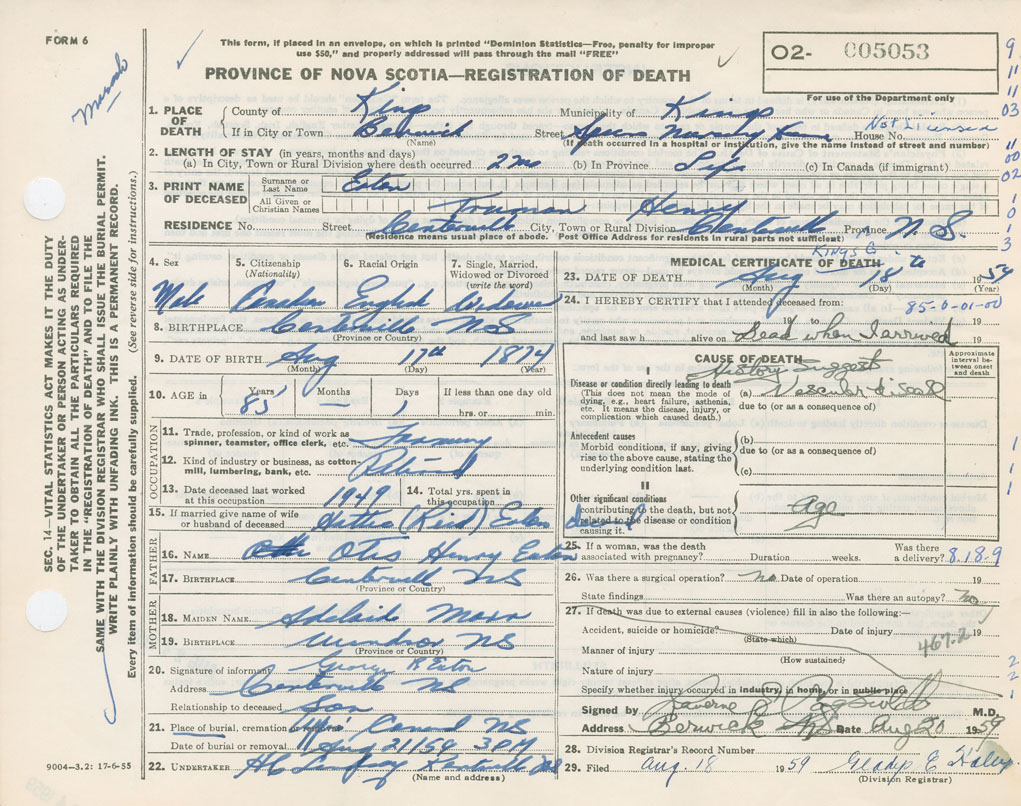 FORM 6
This form, if placed in an envelope, on which is printed "Dominion Statistics—Free, penalty for improper
use $50," and properly addressed will pass through the mail "FREE"
PROVINCE OF NOVA SCOTIA—REGISTRATION OF DEATH
O2- 005053
For use of the Department only
9
11
11
03
11
00
02
1
0
1
3
1. PLACE OF DEATH
County of Kings Municipality of Kings
Not Licensed
If in City or Town Berwick Street Nursing Home House No.
(Name) (If death occurred in a hospital or institution, give the name instead of street and number)
2. LENGTH OF STAY (in years, months and days)
(a) In City, Town or Rural Division where death occurred 2 mo (b) In Province Life (c) In Canada (if immigrant)
3. PRINT NAME OF DECEASED
Surname or Last Name Eaton
All Given or Christian Names Truman Henry
RESIDENCE No. Street Centerville City, Town or Rural Division Centerville Province N.S.
(Residence means usual place of abode. Post Office Address for residents in rural parts not sufficient)
Kings Co
4. Sex
Male
5. Citizenship
(Nationality)
Canadian
6. Racial Origin
English
7. Single, Married,
Widowed or Divorced
(write the word)
Widower
8. BIRTHPLACE Centerville NS
(Province or Country)
9. DATE OF BIRTH Aug 17th 1874
(Month) (Day) (Year)
10. AGE in Years 85 Months — Days 1 If less than one day old
hrs. or min.
OCCUPATION
11. Trade, profession, or kind of work as
spinner, teamster, office clerk, etc. Farming
12. Kind of industry or business, as cotton-
mill, lumbering, bank, etc. Retired
13. Date deceased last worked
at this occupation 1949
14. Total yrs. spent in
this occupation
15. If married give name of wife
or husband of deceased Hattie (Reid) Eaton
FATHER
16. NAME Otis Henry Eaton
17. BIRTHPLACE Centerville NS
(Province or Country)
MOTHER
18. MAIDEN NAME Adelaide
19. BIRTHPLACE Windsor NS
(Province or Country)
20. Signature of informant George R Eaton
Address Centerville NS
Relationship to deceased Son
21. Place of burial, cremation or removal Canard NS
Date of burial or removal Aug 21/59 3 PM
22. UNDERTAKER Kentville NS
(Name and address)
MEDICAL CERTIFICATE OF DEATH
23. DATE OF DEATH Aug 18 th 1959
(Month) (Day) (Year)
24. I HEREBY CERTIFY that I attended deceased from:
85-0-01-00
19 to 19
and last saw h alive on Dead when I arrived 19
CAUSE OF DEATH
Approximate
interval be-
tween onset
and death
I
History suggest
Disease or condition directly leading to death
(This does not mean the mode of
dying, e.g., heart failure, asthenia,
etc. It means the disease, injury, or
complication which caused death.)
(a) Vascular disease
due to (or as a consequence of)
Antecedent causes
Morbid conditions, if any, giving
rise to the above cause, stating the
underlying condition last.
(b)
due to (or as a consequence of)
(c)
II
Other significant conditions
contributing to the death, but not
related to the disease or condition
causing it.
Age
1
1
1
25. If a woman, was the death
associated with pregnancy? Duration weeks. Was there
a delivery? 8.18.9
26. Was there a surgical operation? No. Date of operation 19
State findings Was there an autopsy? No
27. If death was due to external causes (violence) fill in also the following:—
Accident, suicide or homicide? Date of injury 19
(State which)
467.2
Manner of injury
(How sustained)
Nature of injury
Specify whether injury occurred in industry, in home, or in public place
2
2
1
Signed by M.D.
Address Berwick NS Date Aug 20 1959
28. Division Registrar's Record Number
29. Filed Aug. 18 1959 George E
(Division Registrar)
9004-3.2: 17-6-55
SEC. 14—VITAL STATISTICS ACT MAKES IT THE DUTY
OF THE UNDERTAKER OR PERSON ACTING AS UNDER-
TAKER TO OBTAIN ALL THE PARTICULARS REQUIRED
IN THE "REGISTRATION OF DEATH" AND TO FILE THE
SAME WITH THE DIVISION REGISTRAR WHO SHALL ISSUE THE BURIAL PERMIT.
WRITE PLAINLY WITH UNFADING INK. THIS IS A PERMANENT RECORD.
Every item of information should be carefully supplied. (See reverse side for instructions.)